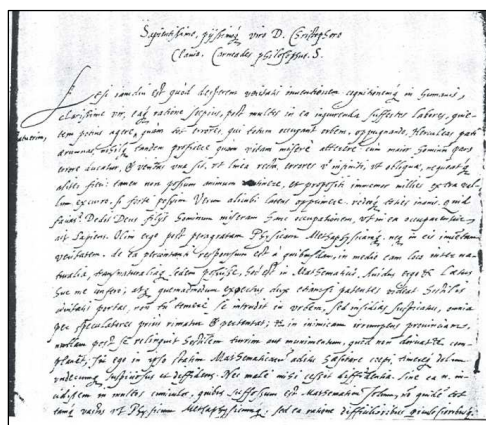 Sapientissimo, pijssimoq viro D. Christophoro
Clavio. Carneades philosophus. S.
Etsi iamdiu est quod desperem veritatis inventionem cognitionemq in humanis,
clarissime vir, eaq ratione sæpius, post multos in ea inquirenda susceptos labores, quie-
tem potius agere, quam tot errores, qui totum occupant orbem, oppugnando, Herculeas pati
statuerim,
ærumnas, nihilq tandem proficere quam vitam miserè atterere cum maior hominum pars
errore ducatur, & veritas una sit, et linea recta, errores infiniti, et obliqui,
aliter fieri: tamen non possum animum continere, et propositi immemor millies extra val-
lum excurro, si fortè possim Verum alicubi latens opprimere. rideoq inanis. quid
faciat? Dedit Deus filijs hominum miseram hanc occupationem, ut in ea occuparentur
ait Sapiens. Olim ergo post peragratam Physicam Metaphysicamq neq in eis inventam
veritatem, de ea percontanti responsum est a quibusdam, in medio eam loco inter na-
turalia, transnaturaliaq sedem posuisse, hoc est in Mathematicis. Avidus ergo & lætus
huc me confero; atq quemadmodum expertus dux
civitatis portas, non temerè se intrudit in urbem, sed insidias suspicatus, omnia
per speculatores prius rimatur & pertentat; & in inimicam irrumpens provinciam,
nullam post se relinquit hostilem turrim aut munimentum, quod non
planet: sic ego in ipso statim Mathematicum aditu hæsitare cepi, timereq dolum
undecumq suspiciosus et diffidens. Nec malè mihi cessit diffidentia. sine ea n. in-
cidissem in multos cuniculos, quibus suffossum est Mathematicum solum, non quidem tot
tamq varios ut Physicum Metaphysicumq, sed ea ratione difficilioribus